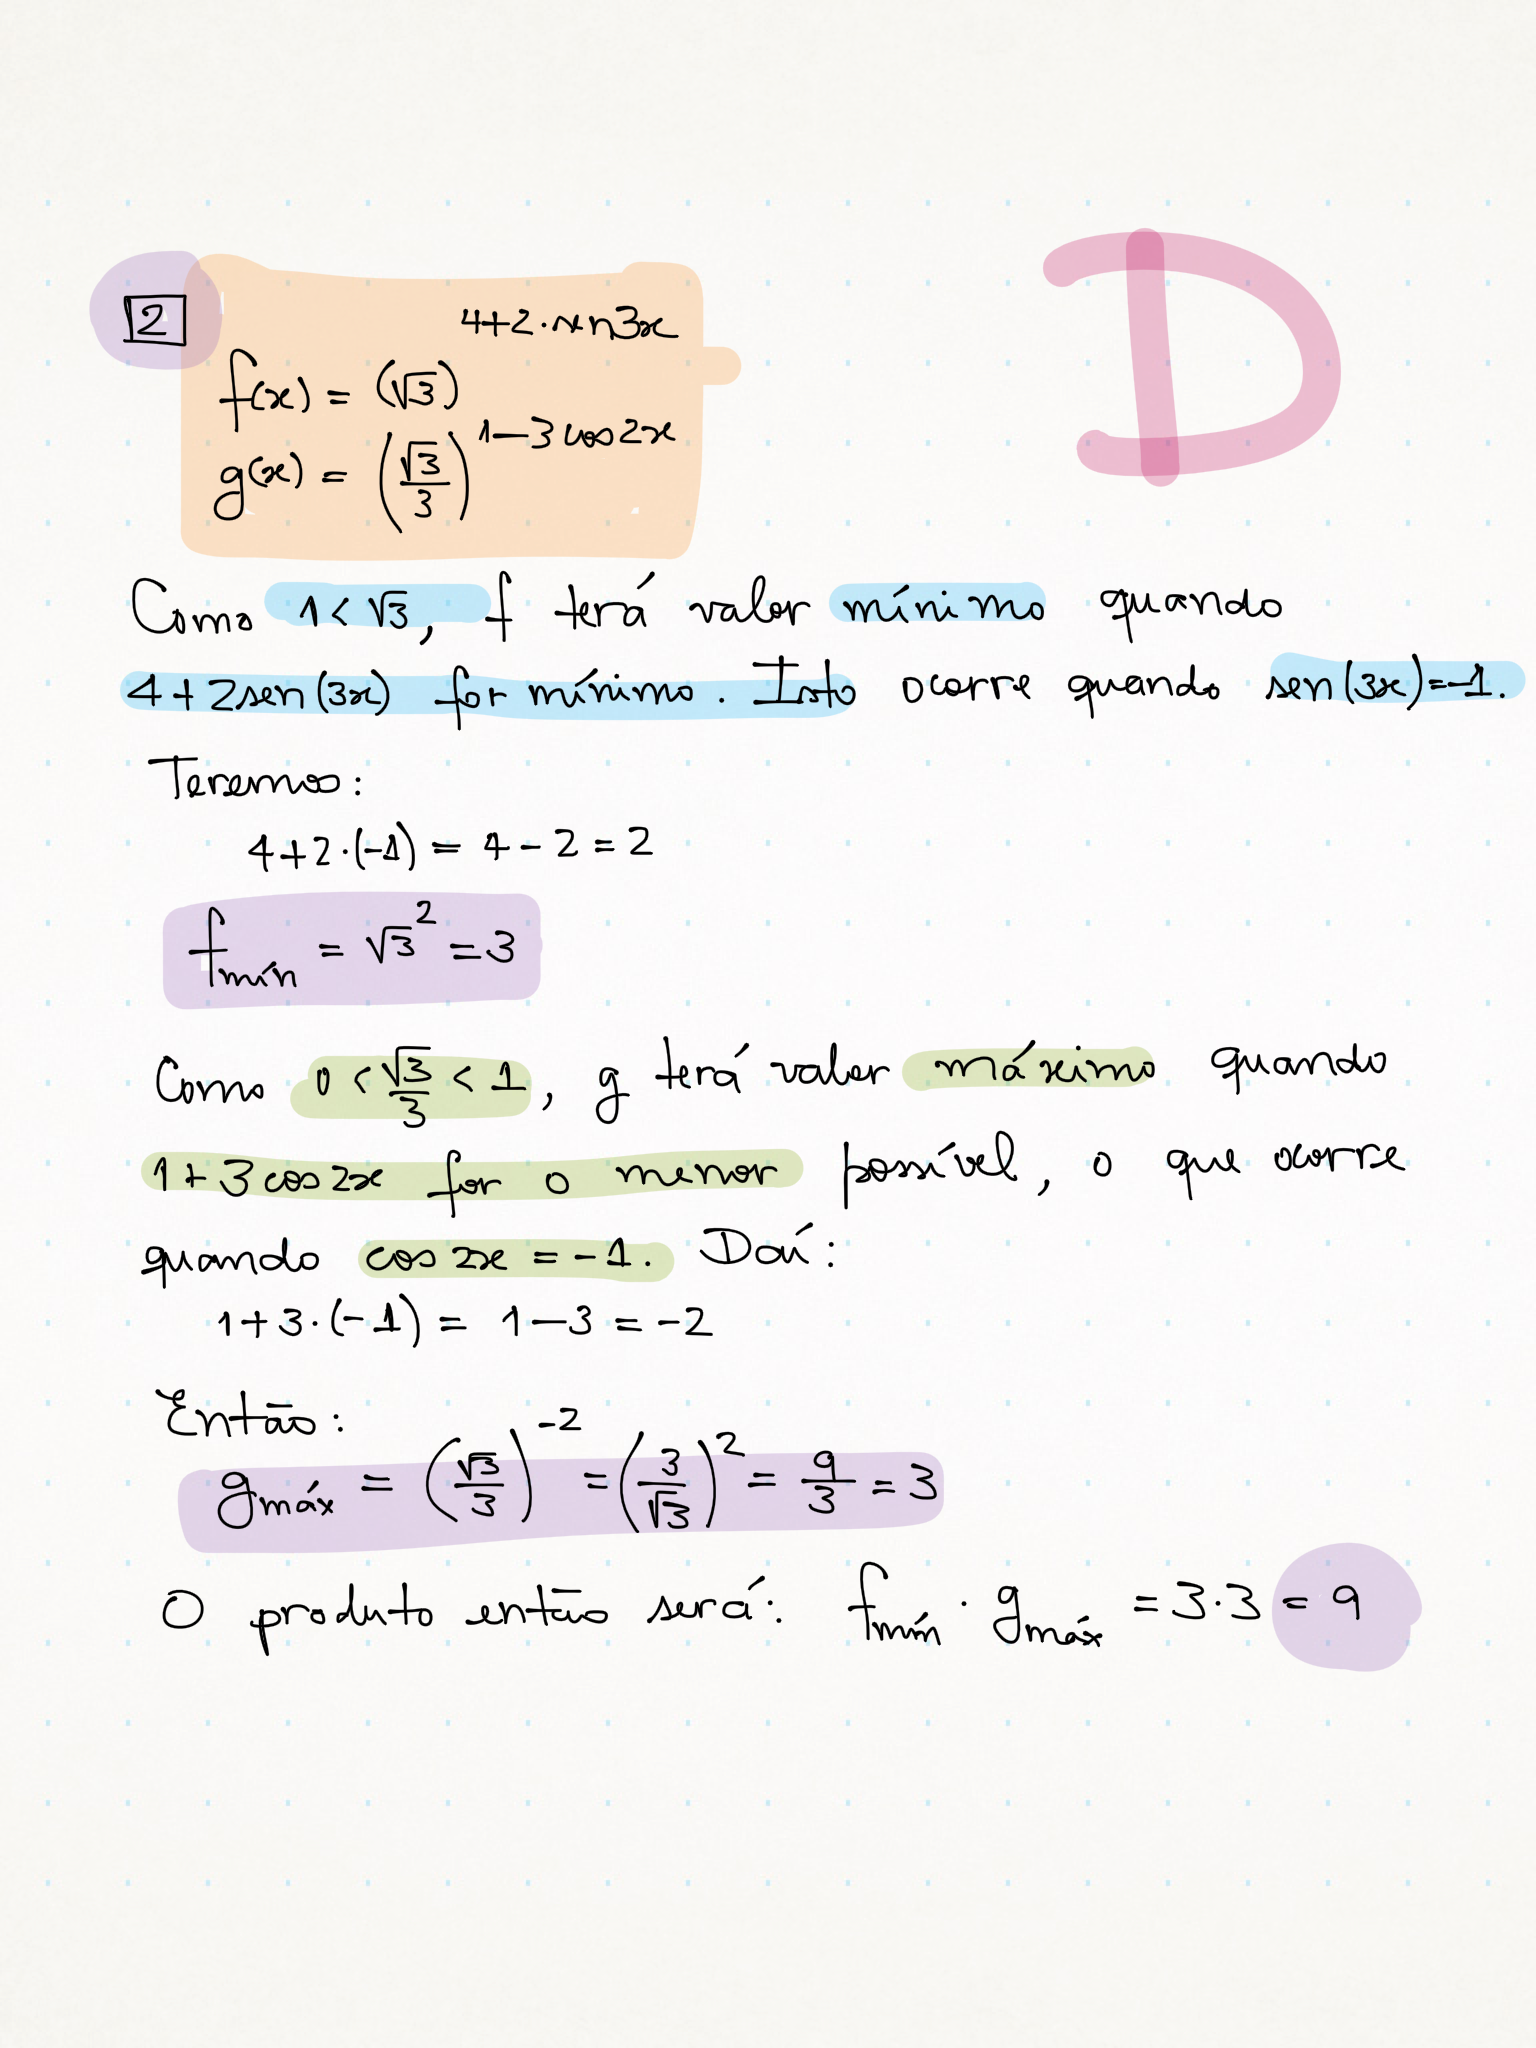 D
2
f(x) = (√3)^(4+2·sen3x)
g(x) = (√3/3)^(1-3cos2x)
Como 1 < √3, f terá valor mínimo quando
4+2sen(3x) for mínimo. Isto ocorre quando sen(3x)=-1.
Teremos:
4+2·(-1) = 4-2 = 2
f_mín = √3² = 3
Como 0 < √3/3 < 1, g terá valor máximo quando
1+3cos2x for o menor possível, o que ocorre
quando cos2x = -1. Daí:
1+3·(-1) = 1-3 = -2
Então:
g_máx = (√3/3)^-2 = (3/√3)² = 9/3 = 3
O produto então será: f_mín · g_máx = 3·3 = 9